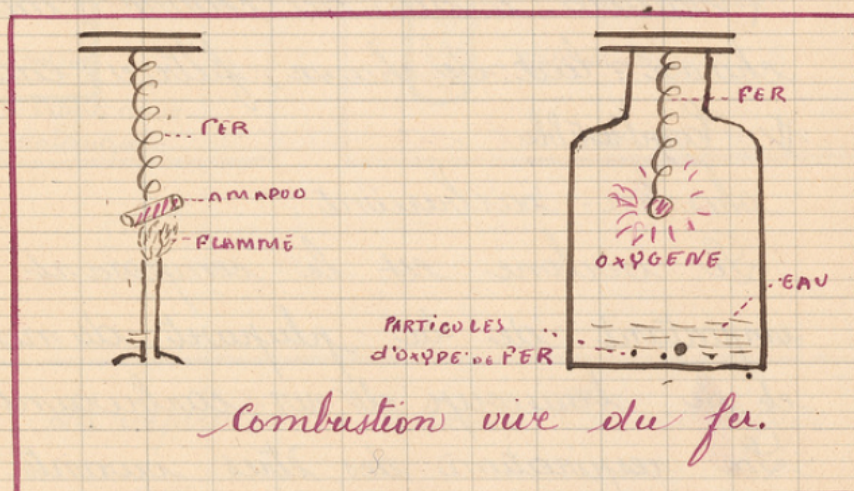 FER
AMADOU
FLAMME
FER
OXYGENE
EAU
PARTICULES
d'OXYDE DE FER
Combustion vive du fer.